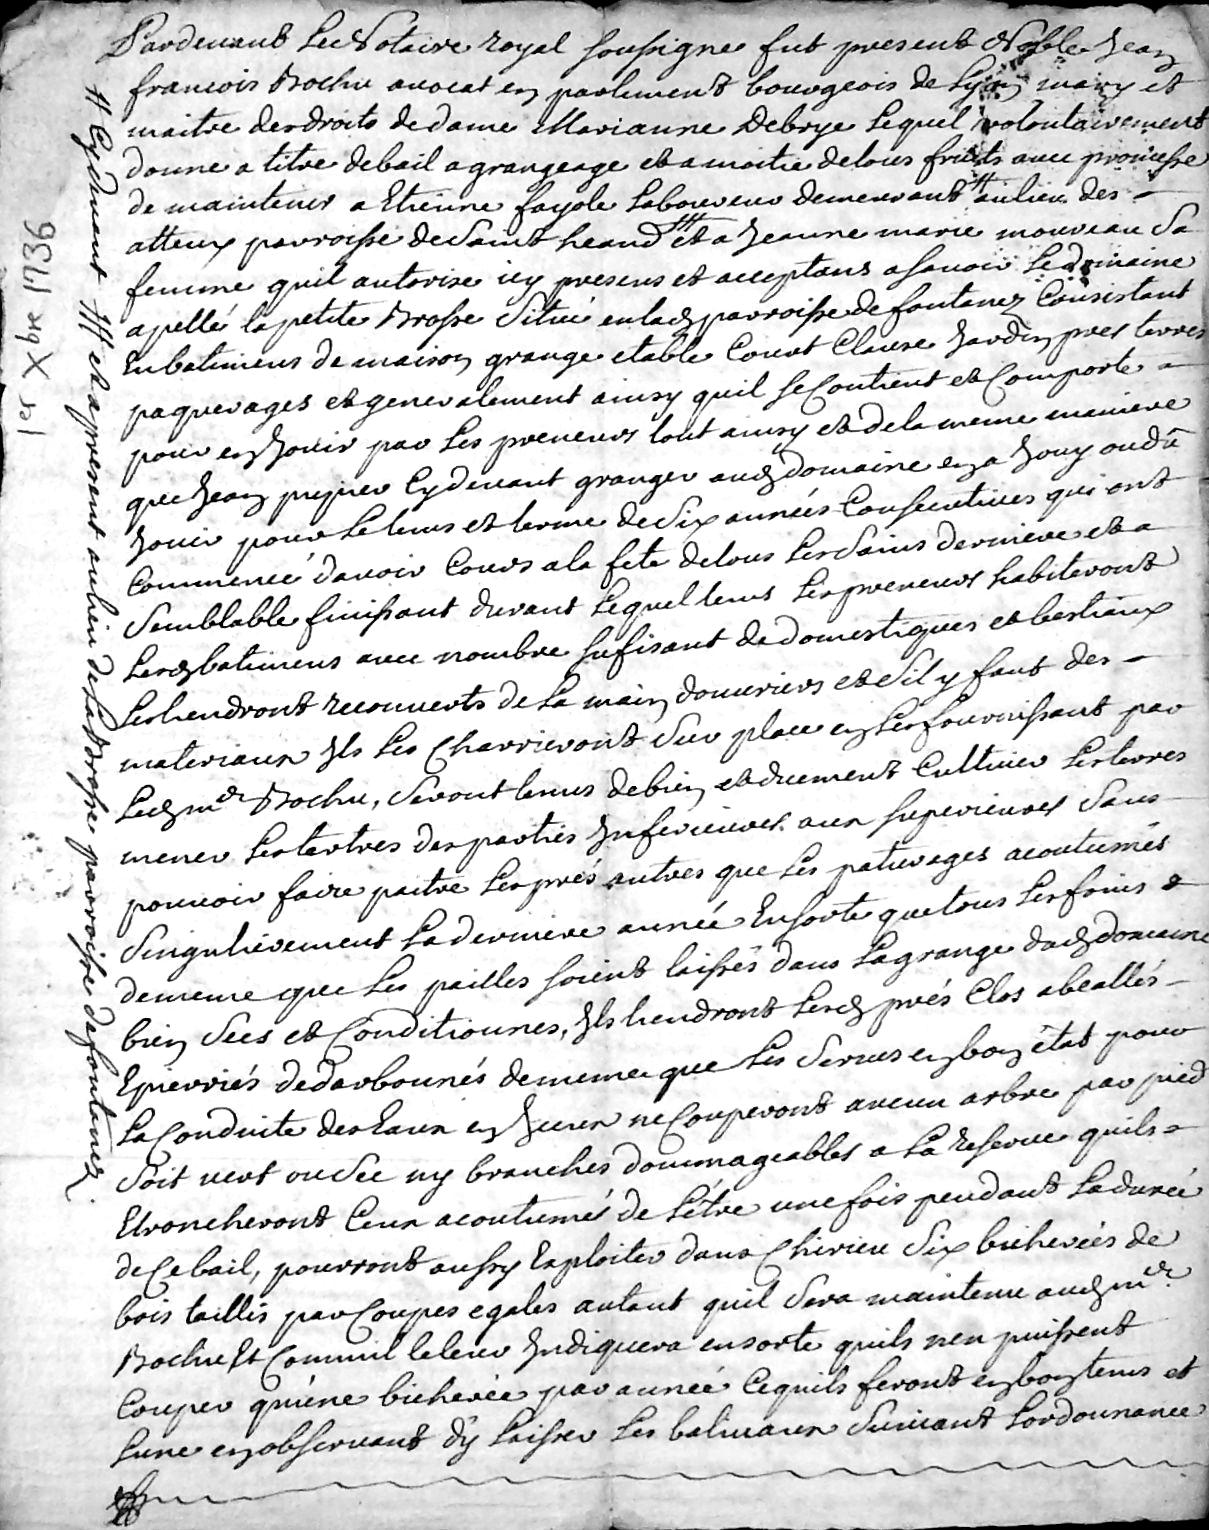 Pardevant Le Notaire royal soussigné fut present Noble Jean
francois Rochu avocat en parlement bourgeois de Lyon mary et
maitre des droits de dame Marianne Debrye Lequel volontairement
donne a titre de bail a grangeage et a moitie de tous fruits avec promesse
de maintenir a Etienne fayole Laboureur demeurant # au lieu des
atteux parroisse de Saint heand ### et a Jeanne marie mouveau Sa
femme quil autorise icy presens et acceptans a savoir Le domaine
apellé la petite Brosse Situé en lad parroisse de fontanez Consistant
En batimens de maison grange etable Court Clause Jardin pres terres
paquerages et generalement ainsy quil se Contient et Comporte
pour en Jouir par Les preneurs tout ainsy et de la meme maniere
que Jean cydevant granger aud domaine en a Jouy ou dû
Jouir pour Le tems et terme de Six années Consecutives qui ont
Commencé davoir Cours a la fete de tous Les Saints derniere et a
Semblable finissant durant Lequel tems Les preneurs habiteront
Lesd batimens avec nombre sufisant de domestiques et bestiaux
Les tiendront recouverts de La main douvriers et Sil y faut des
materiaux Ils Les Charrieront Sur place en Les fournissant par
Led mr Rochu, Seront tenus de bien et duement Cultiver Les terres
mener Les tertres des parties Inferieures aux superieures Sans
pouvoir faire paitre Les prés autres que Les paturages acoutumés
Singulierement La derniere année En sorte que tous Les foins et
de meme que Les pailles soient laissés dans La grange dud domaine
bien Secs et Conditionnes, Ils tiendront Lesd prés Clos abeallés
Epierriés dedarbounés de meme que Les Serves en bon état pour
La Conduite des Eaux en Iceux ne Couperont aucun arbre par pied
Soit vert ou Sec ny branches dommageables a La reserve quils
Etroncheront Ceux acoutumés de Létre une fois pendant La durée
de Ce bail, pourront aussy Exploiter dans Chirieu Six bicherées de
bois taillis par Coupes egales autant quil Sera maintenu aud mr
Rochu Et Comm il le leur Indiquera en sorte quils nen puissent
Couper qu'une bicherée par année Cequils feront en bon tems et
Lune en observant d'y Laisser Les balivaux Suivant Lordonnance
# Cydevant ### et apresent au lieu de La Brosse parroisse de fontanez.
1er Xbre 1736